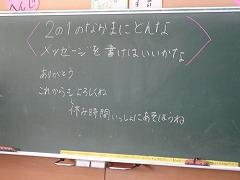 へんじ
2の1のなかまにどんな
メッセージを書けばいいかな
ありがとう
これからもよろしくね
休み時間いっしょにあそぼうね